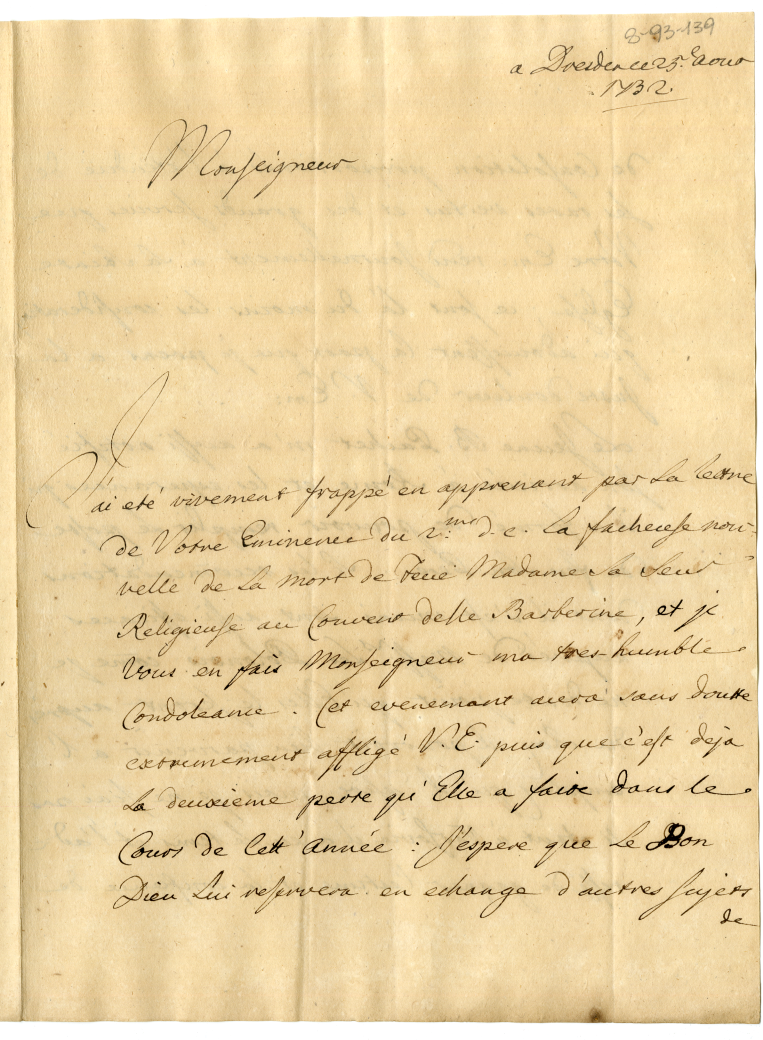 8-93-139
a Dresden ce 25.e Aout
1732.
Monseigneur
J'ai eté vivement frappé en apprenant par La lettre
de Votre Eminence du 2.me d. c. La facheuse nou-
velle de La mort de feue Madame Sa Seur
Religieuse au Couvent delle Barberine, et je
Vous en fais Monseigneur ma tres humble
Condoleance. Cet evenemant aura sans doutte
extremement affligé V. E. puis que c'est deja
La deuxieme perte qu'Elle a faite dans le
Cours de Cett' Année : J'espere que Le Bon
Dieu Lui reservera en echange d'autres sujets
de